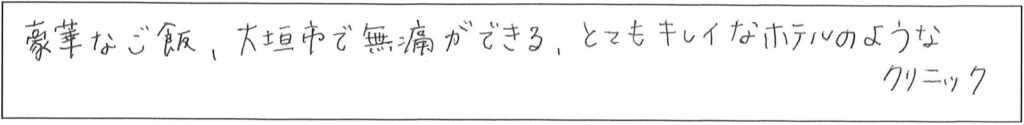 豪華なご飯、大垣市で無痛ができる、とてもキレイなホテルのような
クリニック